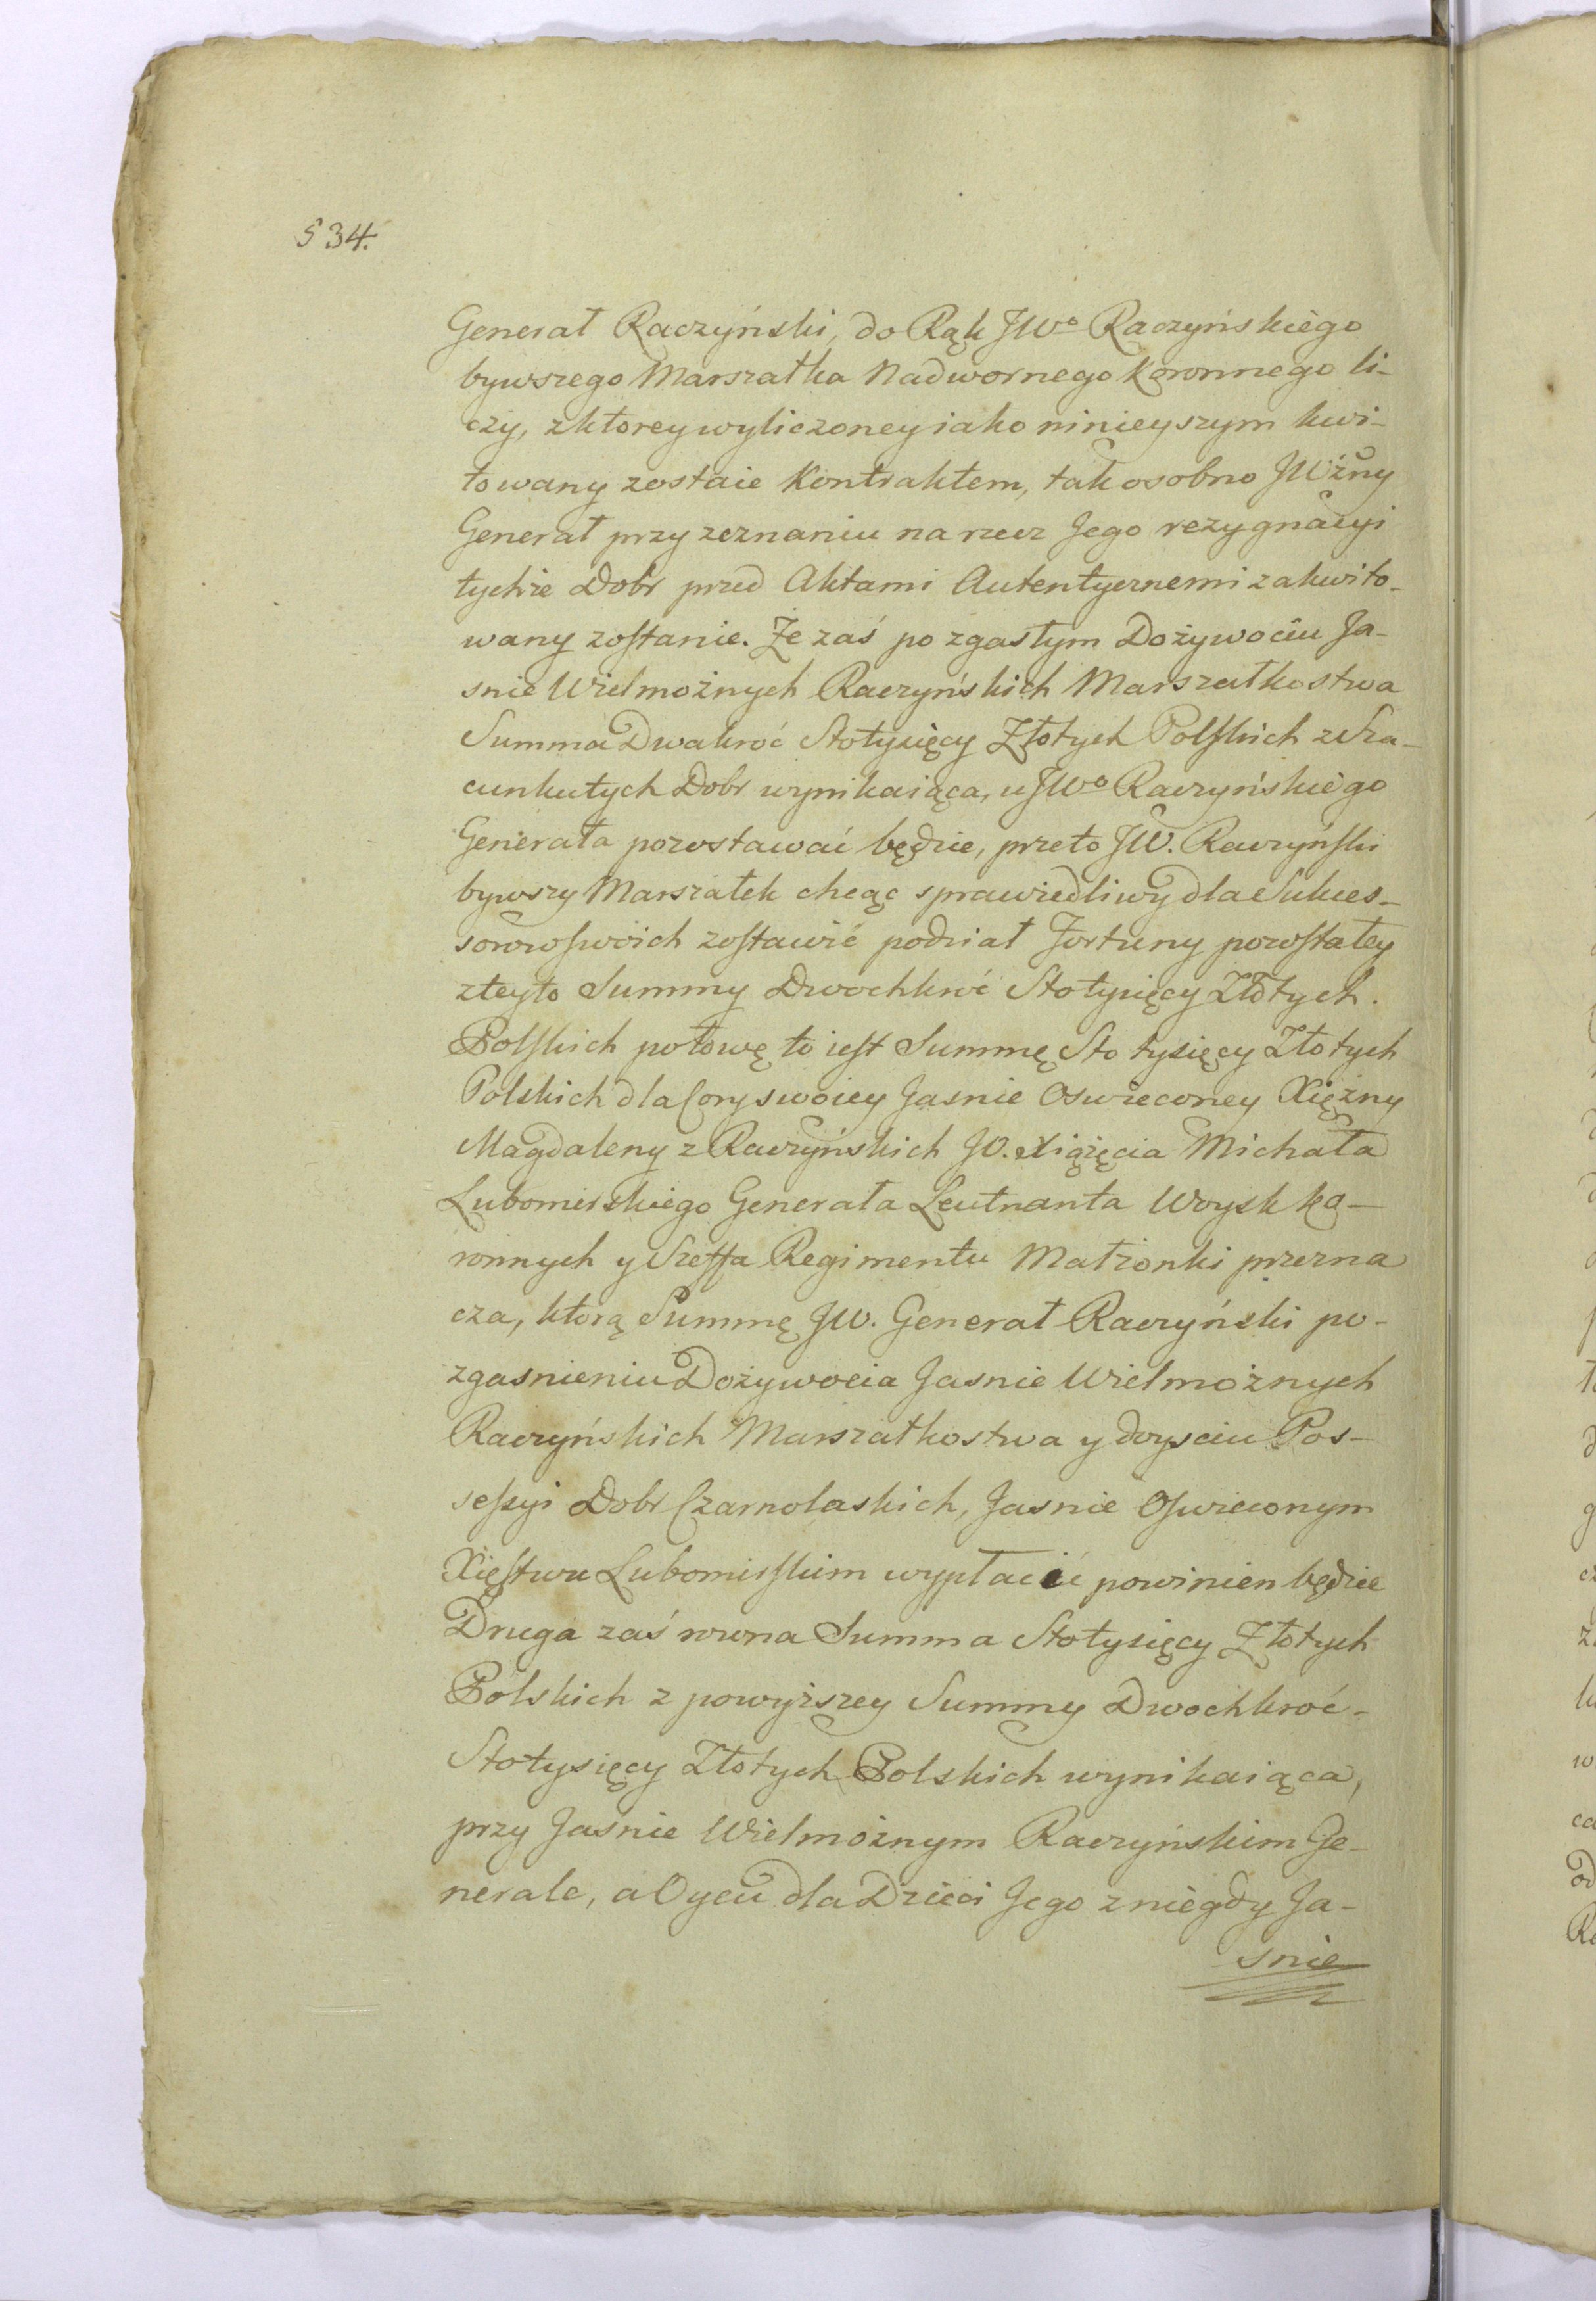 534.
Generał Raczyński, do Rąk JWo Raczyńskiego
bywszego Marszałka Nadwornego Koronnego li-
czy, z ktorey wyliczoney iako ninieyszym kwi-
towany zostaie Kontraktem, tak osobno JWżny
Generał przy zeznaniu na rzecz Jego rezygnacyi
tychże Dobr przed Aktami Autentycznemi zakwito-
wany zostanie. Że zaś po zgasłym Dożywociu Ja-
snie Wielmożnych Raczyńskich Marszałkostwa
Summa Dwakroć Stotysięcy Złotych Polskich z Sza-
cunku tych Dobr wynikaiąca, u JWo Raczyńskiego
Generała pozostawać będzie, przeto JW. Raczyński
bywszy Marszałek chcąc sprawiedliwy dla Sukces-
sorow swoich zostawić podział Fortuny pozostałey
z teyto Summy Dwochkroć Stotysięcy Złotych
Polskich połowę to iest Summę Sto tysięcy Złotych
Polskich dla Cory swoiey Jasnie Oswieconey Xiężny
Magdaleny z Raczyńskich JO. Xiążęcia Michała
Lubomirskiego Generała Leutnanta Woysk Ko-
ronnych y Szeffa Regimentu Małżonki przezna
cza, ktorą Summę JW. Generał Raczyński po-
zgasnieniu Dożywocia Jasnie Wielmożnych
Raczyńskich Marszałkostwa y doysciu Pos-
sessyi Dobr Czarnolaskich, Jasnie Oswieconym
Xięstwu Lubomirskim wypłacić powinien będzie
Druga zaś rowna Summa Stotysięcy Złotych
Polskich z powyższey Summy Dwochkroć-
Stotysięcy Złotych Polskich wynikaiąca,
przy Jaśnie Wielmożnym Raczyńskim Ge-
nerale, a Oycu dla Dzieci Jego z niegdy Ja-
snie